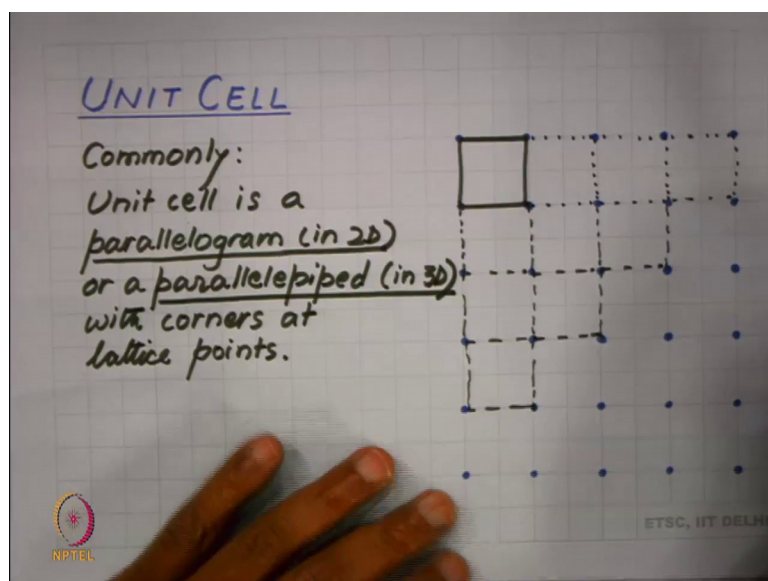 UNIT CELL
Commonly:
Unit cell is a
parallelogram (in 2D)
or a parallelepiped (in 3D)
with corners at
lattice points.
ETSC, IIT DELHI
NPTEL